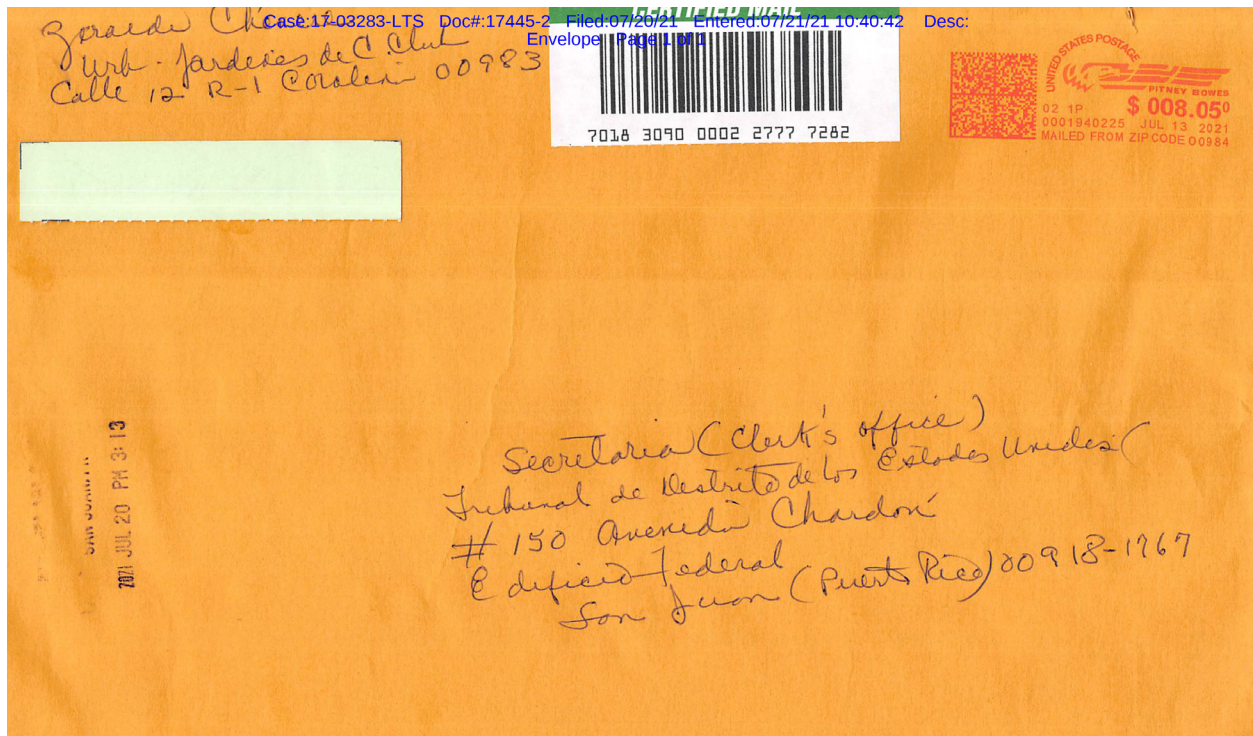 Case:17-03283-LTS Doc#:17445-2 Filed:07/20/21 Entered:07/21/21 10:40:42 Desc:
Envelope Page 1 of 1
Urb. Jardines de C. Club
Calle 12 R-1 Carolina 00983
CERTIFIED MAIL
7018 3090 0002 2777 7282
UNITED STATES POSTAGE
PITNEY BOWES
02 1P $ 008.05⁰
0001940225 JUL 13 2021
MAILED FROM ZIP CODE 00984
2021 JUL 20 PM 3:13
Secretaria (Clerk's office)
Tribunal de Distrito de los Estados Unidos (
# 150 Avenida Chardon
Edificio Federal
San Juan (Puerto Rico) 00918-1767